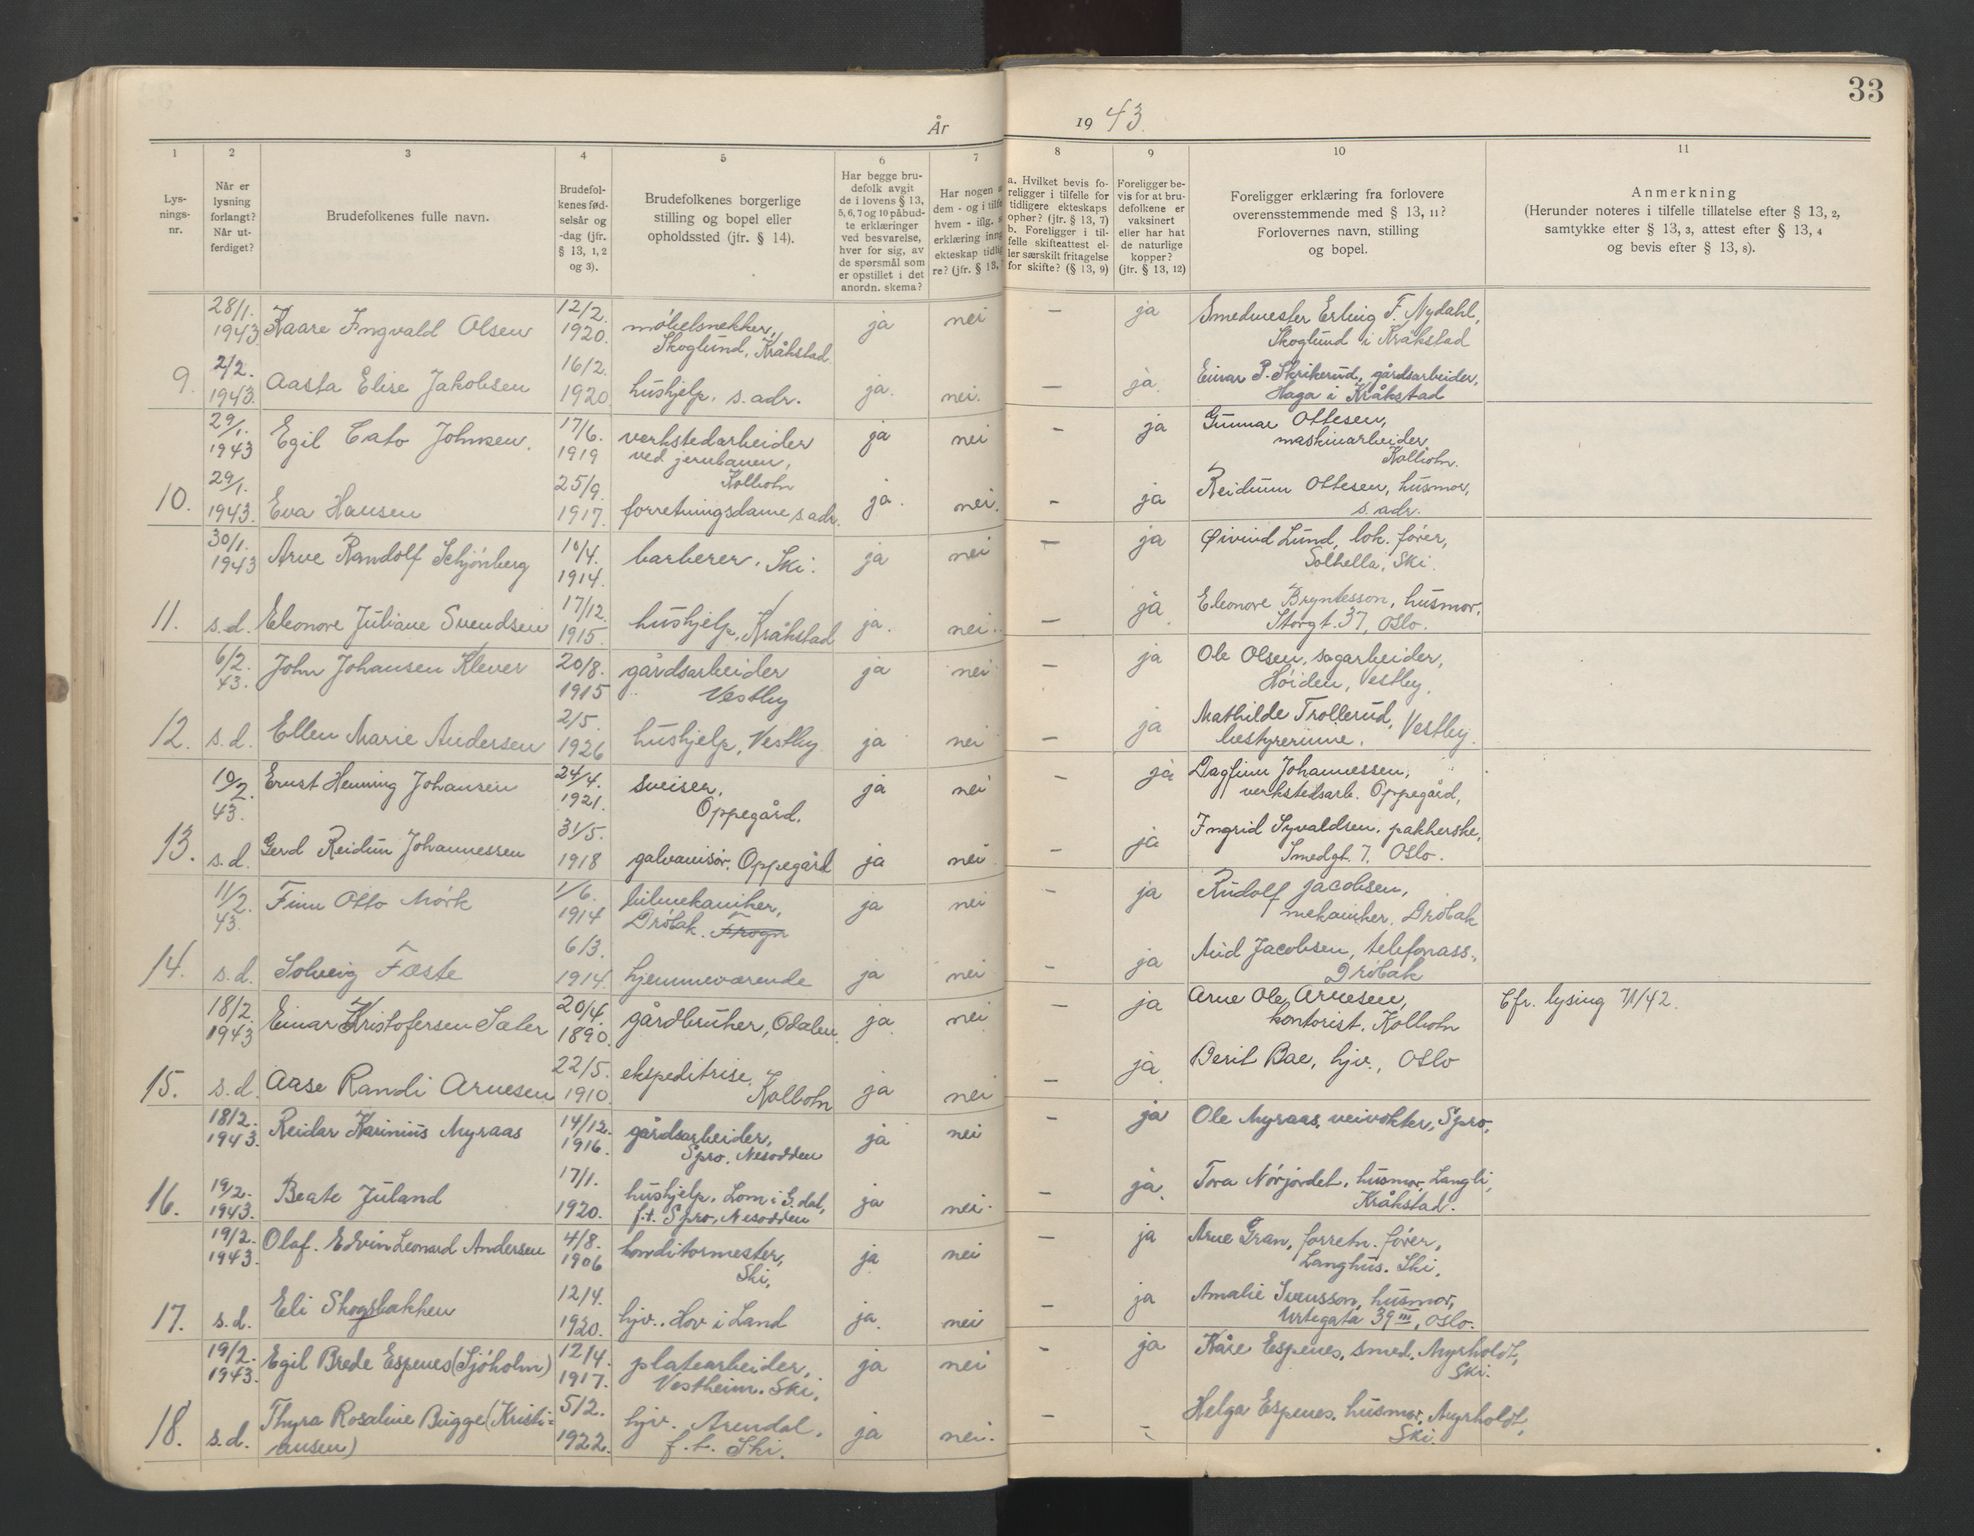 33
År 1943.
1 2 3 4 5 6 7 8 9 10 11
Lys-
nings-
nr.
Når er
lysning
forlangt?
Når ut-
ferdiget?
Brudefolkenes fulle navn.
Brudefol-
kenes fød-
selsår og
-dag (jfr.
§ 13, 1, 2
og 3).
Brudefolkenes borgerlige
stilling og bopel eller
opholdssted (jfr. § 14).
Har begge bru-
defolk avgit
de i lovens § 13,
5, 6, 7 og 10 påbud-
te erklæringer
ved besvarelse,
hver for sig, av
de spørsmål som
er opstillet i det
anordn. skema?
Har nogen a
dem - og i tilfe
hvem - iflg. s
erklæring inng
ekteskap tidlig
re? (jfr. § 13,
a. Hvilket bevis fo-
religger i tilfelle for
tidligere ekteskaps
ophør? (jfr. § 13, 7)
b. Foreligger i til-
felle skifteattest el-
ler særskilt fritagelse
for skifte? (§ 13, 9)
Foreligger be-
vis for at bru-
defolkene er
vaksinert
eller har hat
de naturlige
kopper?
(jfr. § 13, 12)
Foreligger erklæring fra forlovere
overensstemmende med § 13, 11?
Forlovernes navn, stilling
og bopel.
Anmerkning
(Herunder noteres i tilfelle tillatelse efter § 13, 2,
samtykke efter § 13, 3, attest efter § 13, 4
og bevis efter § 13, 8).
28/1. 1943 Kaare Ingvald Olsen 12/2. 1920. møbelsnekker, Skoglund, Kråkstad ja nei — ja Smedmester Erling F. Nydahl,
Skoglund i Kråkstad
9. 2/2. 1943. Aasta Elise Jakobsen 16/2. 1920 hushjelp. s. adr. ja. nei. — ja. Einar P. Skrikerud, gårdsarbeider,
Haga i Kråkstad
29/1. 1943 Egil Cato Johnsen. 17/6. 1919 verkstedarbeider
ved jernbanen,
Kolbotn ja nei — ja Gunnar Ottesen,
maskinarbeider,
Kolbotn.
10. 29/1. 1943. Eva Hansen 25/9. 1917. forretningsdame s. adr. ja. nei. — ja Reidun Ottesen, husmor,
s. adr.
30/1. 1943 Arve Randolf Schjønberg 10/4. 1914. barberer, Ski. ja nei — ja Øivind Lund, lok. fører,
Solhella, Ski.
11. s.d. Eleonore Juliane Svendsen 17/12. 1915 hushjelp, Kråkstad ja. nei. — ja. Eleonore Bryntesson, husmor,
Storgt. 37, Oslo.
6/2. 43. John Johansen Klever 20/8. 1915 gårdsarbeider
Vestby ja nei — ja Ole Olsen, sagarbeider,
Høiden, Vestby.
12. s.d. Ellen Marie Andersen 2/5. 1926 hushjelp, Vestby ja nei — ja Mathilde Trollerud,
bestyrerinne. Vestby.
10/2. 43. Ernst Henning Johansen 24/4. 1921. sveiser,
Oppegård. ja nei — ja Dagfinn Johannessen,
verkstedsarb. Oppegård,
13. s.d. Gerd Reidun Johannessen 31/5. 1918 galvanisør, Oppegård ja nei. — ja Ingrid Syvaldsen, pakkerske,
Smedgt. 7, Oslo.
11/2. 43. Finn Otto Mörk 1/6. 1914 bilmekaniker,
Drøbak. Frogn ja nei — ja Rudolf Jacobsen,
mekaniker, Drøbak
14. s.d. Solveig Fæste 6/3. 1914. hjemmeværende ja nei — ja Aud Jacobsen, telefonass.,
Drøbak
18/2. 1943 Einar Kristofersen Sæter 20/4. 1890. gårdbruker, Odalen. ja nei — ja Arne Ole Arnesen,
kontorist, Kolbotn Cfr. lysing 7/1/42.
15. s.d. Aase Randi Arnesen 22/5. 1910. ekspeditrise,
Kolbotn ja nei — ja Berit Bae, hjv., Oslo
18/2. 1943. Reidar Karinius Myraas 14/12. 1916. gårdsarbeider,
Spro, Nesodden ja nei — ja Ole Myraas, veivokter, Spro,
16. 19/2. 1943. Beate Juland 17/1. 1920. hushjelp, Lom i G.dal,
f.t. Spro, Nesodden ja nei. — ja. Tora Nørjordet, husmor, Langli,
Kråkstad.
19/2. 1943. Olaf. Edvin Leonard Andersen 4/8. 1906 konditormester,
Ski, ja nei — ja Arne Gran, forretn. fører,
Langhus. Ski,
17. s.d. Eli Skogsbakken 12/4. 1920. hjv., Hov i Land ja. nei — ja Amalie Svensson, husmor,
Urtegata 39 III, Oslo.
19/2. 1943. Egil Brede Espenes (Sjöholm) 12/4. 1917. platearbeider,
Vestheim. Ski, ja nei — ja Kåre Espenes, smed, Myrholdt,
Ski.
18. s.d. Thyra Rosaline Bugge (Kristi-
ansen) 5/2. 1922. hjv. Arendal,
f.t. Ski. ja nei. — — Helga Espenes, husmor, Myrholdt,
Ski.